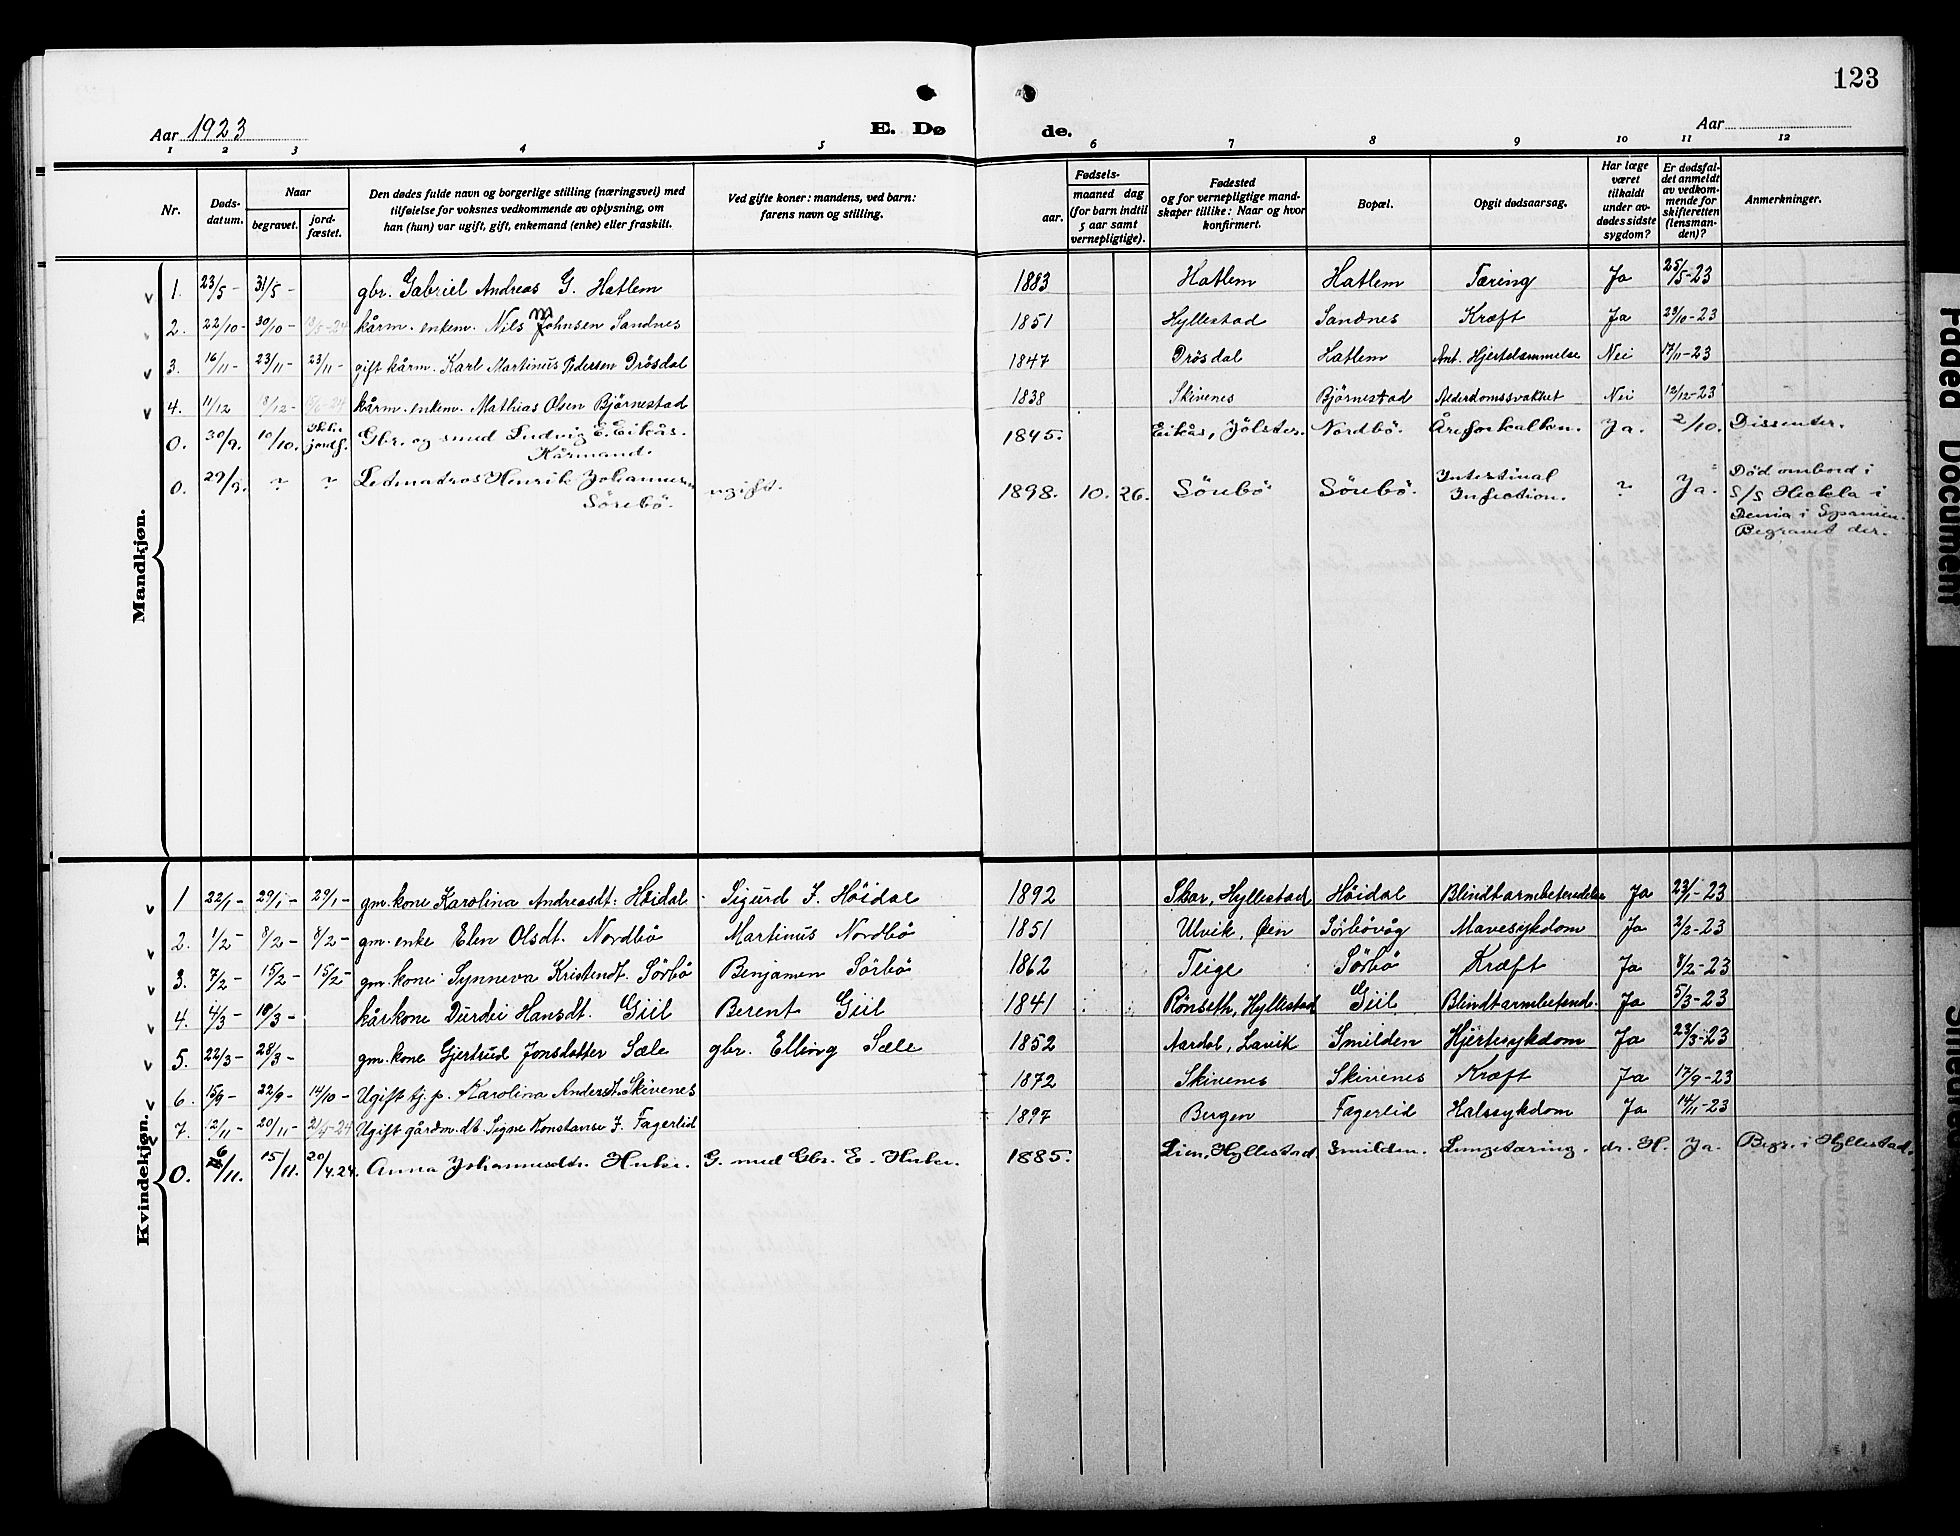 123
Aar 1923
E. Dø
de.
Aar
1 2 3 4 5 6 7 8 9 10 11 12
Nr.
Døds-
datum.
Naar
begravet.
jord-
fæstet.
Den dødes fulde navn og borgerlige stilling (næringsvei) med
tilføielse for voksnes vedkommende av oplysning, om
han (hun) var ugift, gift, enkemand (enke) eller fraskilt.
Ved gifte koner: mandens, ved barn:
farens navn og stilling.
Fødsels-
aar.
maaned dag
(for barn indtil
5 aar samt
vernepligtige).
Fødested
og for vernepligtige mand-
skaper tillike: Naar og hvor
konfirmert.
Bopæl.
Opgit dødsaarsag.
Har læge
været
tilkaldt
under av-
dødes sidste
sygdom?
Er dødsfal-
det anmeldt
av vedkom-
mende for
skifteretten
(lensman-
den)?
Anmerkninger.
Mandkjøn.
1. 23/5 - 31/5 - gbr. Gabriel Andreas G. Hatlem 1883 Hatlem Hatlem Tæring Ja 25/5-23
2. 22/10 - 30/10 - kårm. enkem. Nils Johnsen Sandnes 1851 Hyllestad Sandnes Kræft Ja 23/10-23
3. 16/11 - 23/11 - 23/11 - gift kårm. Karl Martinus Pedersen Drösdal 1847 Drösdal Hatlem Ant. Hjertelammelse Nei 17/11-23
4. 11/12 18/12 - kårm. enkem. Mathias Olsen Björnestad 1838 Skivenes Björnestad Alderdomssvakhet Nei 12/12-23
0. 30/9. 10/10. Ikke jordf. Gbr. og smed Ludvig E. Eikås. Kårmand. 1845. Eikås, Jölster. Nordbö. Åreforkalkn. Ja. 2/10. Dissenter.
0. 29/9. ? ? Ledmadros Henrik Johannesen Sörebö. ugift. 1898. 10. 26. Sörebö Sörebö. Intestinal Infection. ? Ja. Död ombord i
S/S Heckla i
Denia i Spanien.
Begravet der.
Kvindekjøn.
1 22/1 - 29/1 - 29/1 - gm. kone Karolina Andreasdt. Höidal Sigurd J. Höidal 1892 Skor, Hyllestad Höidal Blindtarmbetendelse Ja 23/1-23
2. 1/2 - 8/2 - 8/2 - gm. enke Elen Olsdt. Nordbö Martinus Nordbö 1851 Ulvik, Øen Sörbövåg Mavesykdom Ja 2/2-23
3. 7/2 - 15/2 - 15/2 - gm. kone Synneva Kristendt. Sörbö Benjamen Sörbö 1862 Teige Sörbö Kræft Ja 8/2-23
4. 4/3 - 10/3 - kårkone Durdei Hansdt. Giil Berent Giil 1841 Rönseth, Hyllestad Giil Blindtarmbetende. Ja 5/3-23
5. 22/3 - 28/3 - gm. kone Gjertrud Jonsdatter Sæle gbr. Elling Sæle 1852 Aardal, Lavik Smilden Hjertesykdom Ja 23/3-23
6. 15/9 - 22/9 - 14/10 - Ugift tj. p. Karolina Andersdt. Skivenes 1872 Skivenes Skivenes Kræft Ja 17/9-23
7. 12/11 - 20/11 - Ugift gårdm. dt. Signe Konstanse J. Fagerlid 1897 Bergen Fagerlid Halssykdom Ja 14/11-23
0. 6/11. 15/11. 20/4.24. Anna Johannesdtr. G. med Gbr. E. 1885. Lien, Hyllestad Smilden. Lungetæring. dr. H. Ja. Begr. i Hyllestad.
Faded Document